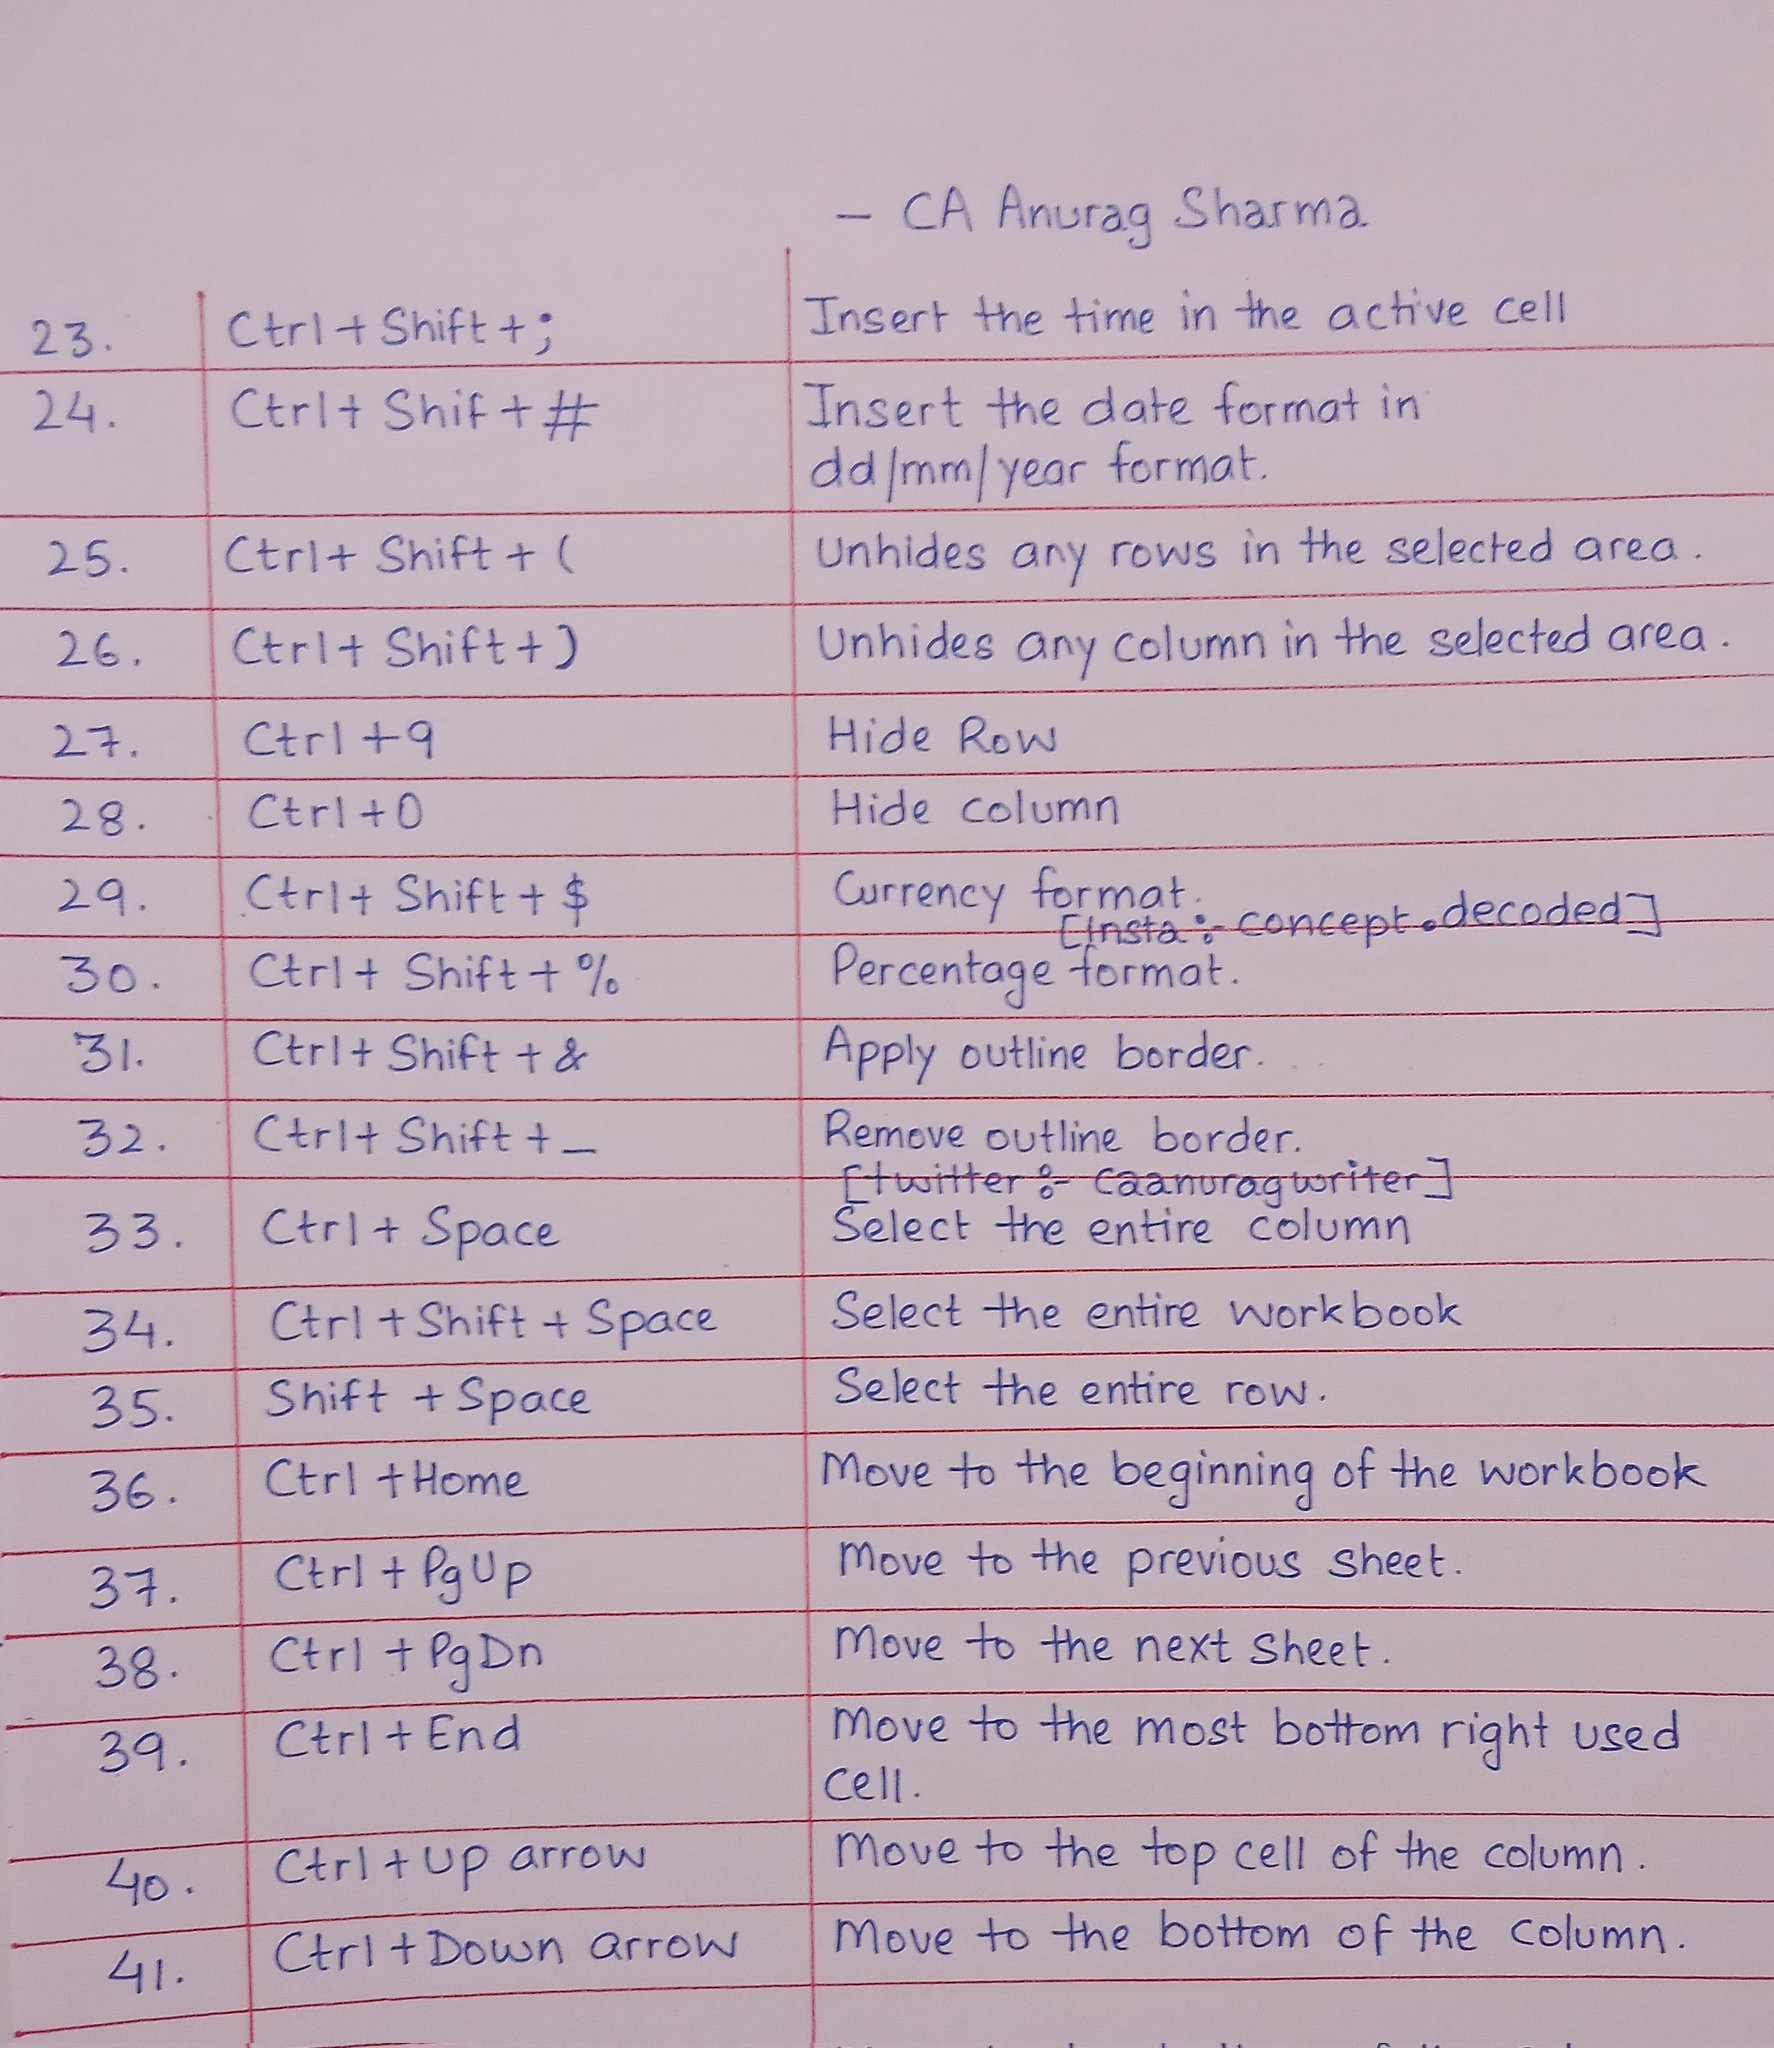 – CA Anurag Sharma
23. Ctrl + Shift + ; Insert the time in the active cell
24. Ctrl + Shif + # Insert the date format in
dd/mm/year format.
25. Ctrl + Shift + ( Unhides any rows in the selected area.
26. Ctrl + Shift + ) Unhides any column in the selected area.
27. Ctrl + 9 Hide Row
28. Ctrl + 0 Hide column
29. Ctrl + Shift + $ Currency format.
[insta :- concept.decoded]
30. Ctrl + Shift + % Percentage format.
31. Ctrl + Shift + & Apply outline border.
32. Ctrl + Shift + _ Remove outline border.
[twitter :- caanuragwriter]
33. Ctrl + Space Select the entire column
34. Ctrl + Shift + Space Select the entire workbook
35. Shift + Space Select the entire row.
36. Ctrl + Home Move to the beginning of the workbook
37. Ctrl + PgUp Move to the previous sheet.
38. Ctrl + PgDn Move to the next sheet.
39. Ctrl + End Move to the most bottom right used
cell.
40. Ctrl + Up arrow Move to the top cell of the column.
41. Ctrl + Down arrow Move to the bottom of the column.